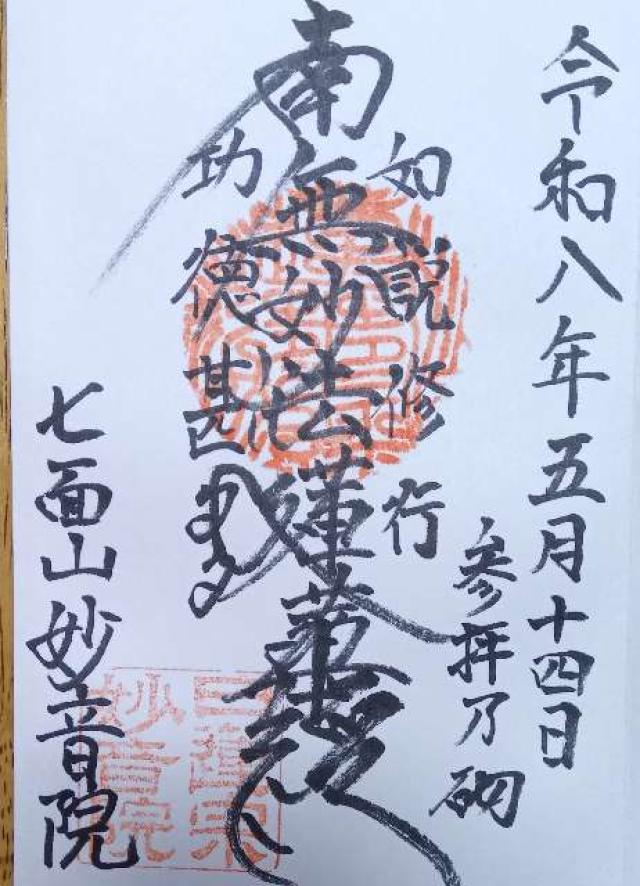 令和八年五月十四日
参拝乃砌
如説修行
南無妙法蓮華経
功徳甚
七面山妙音院
日蓮宗
妙音院